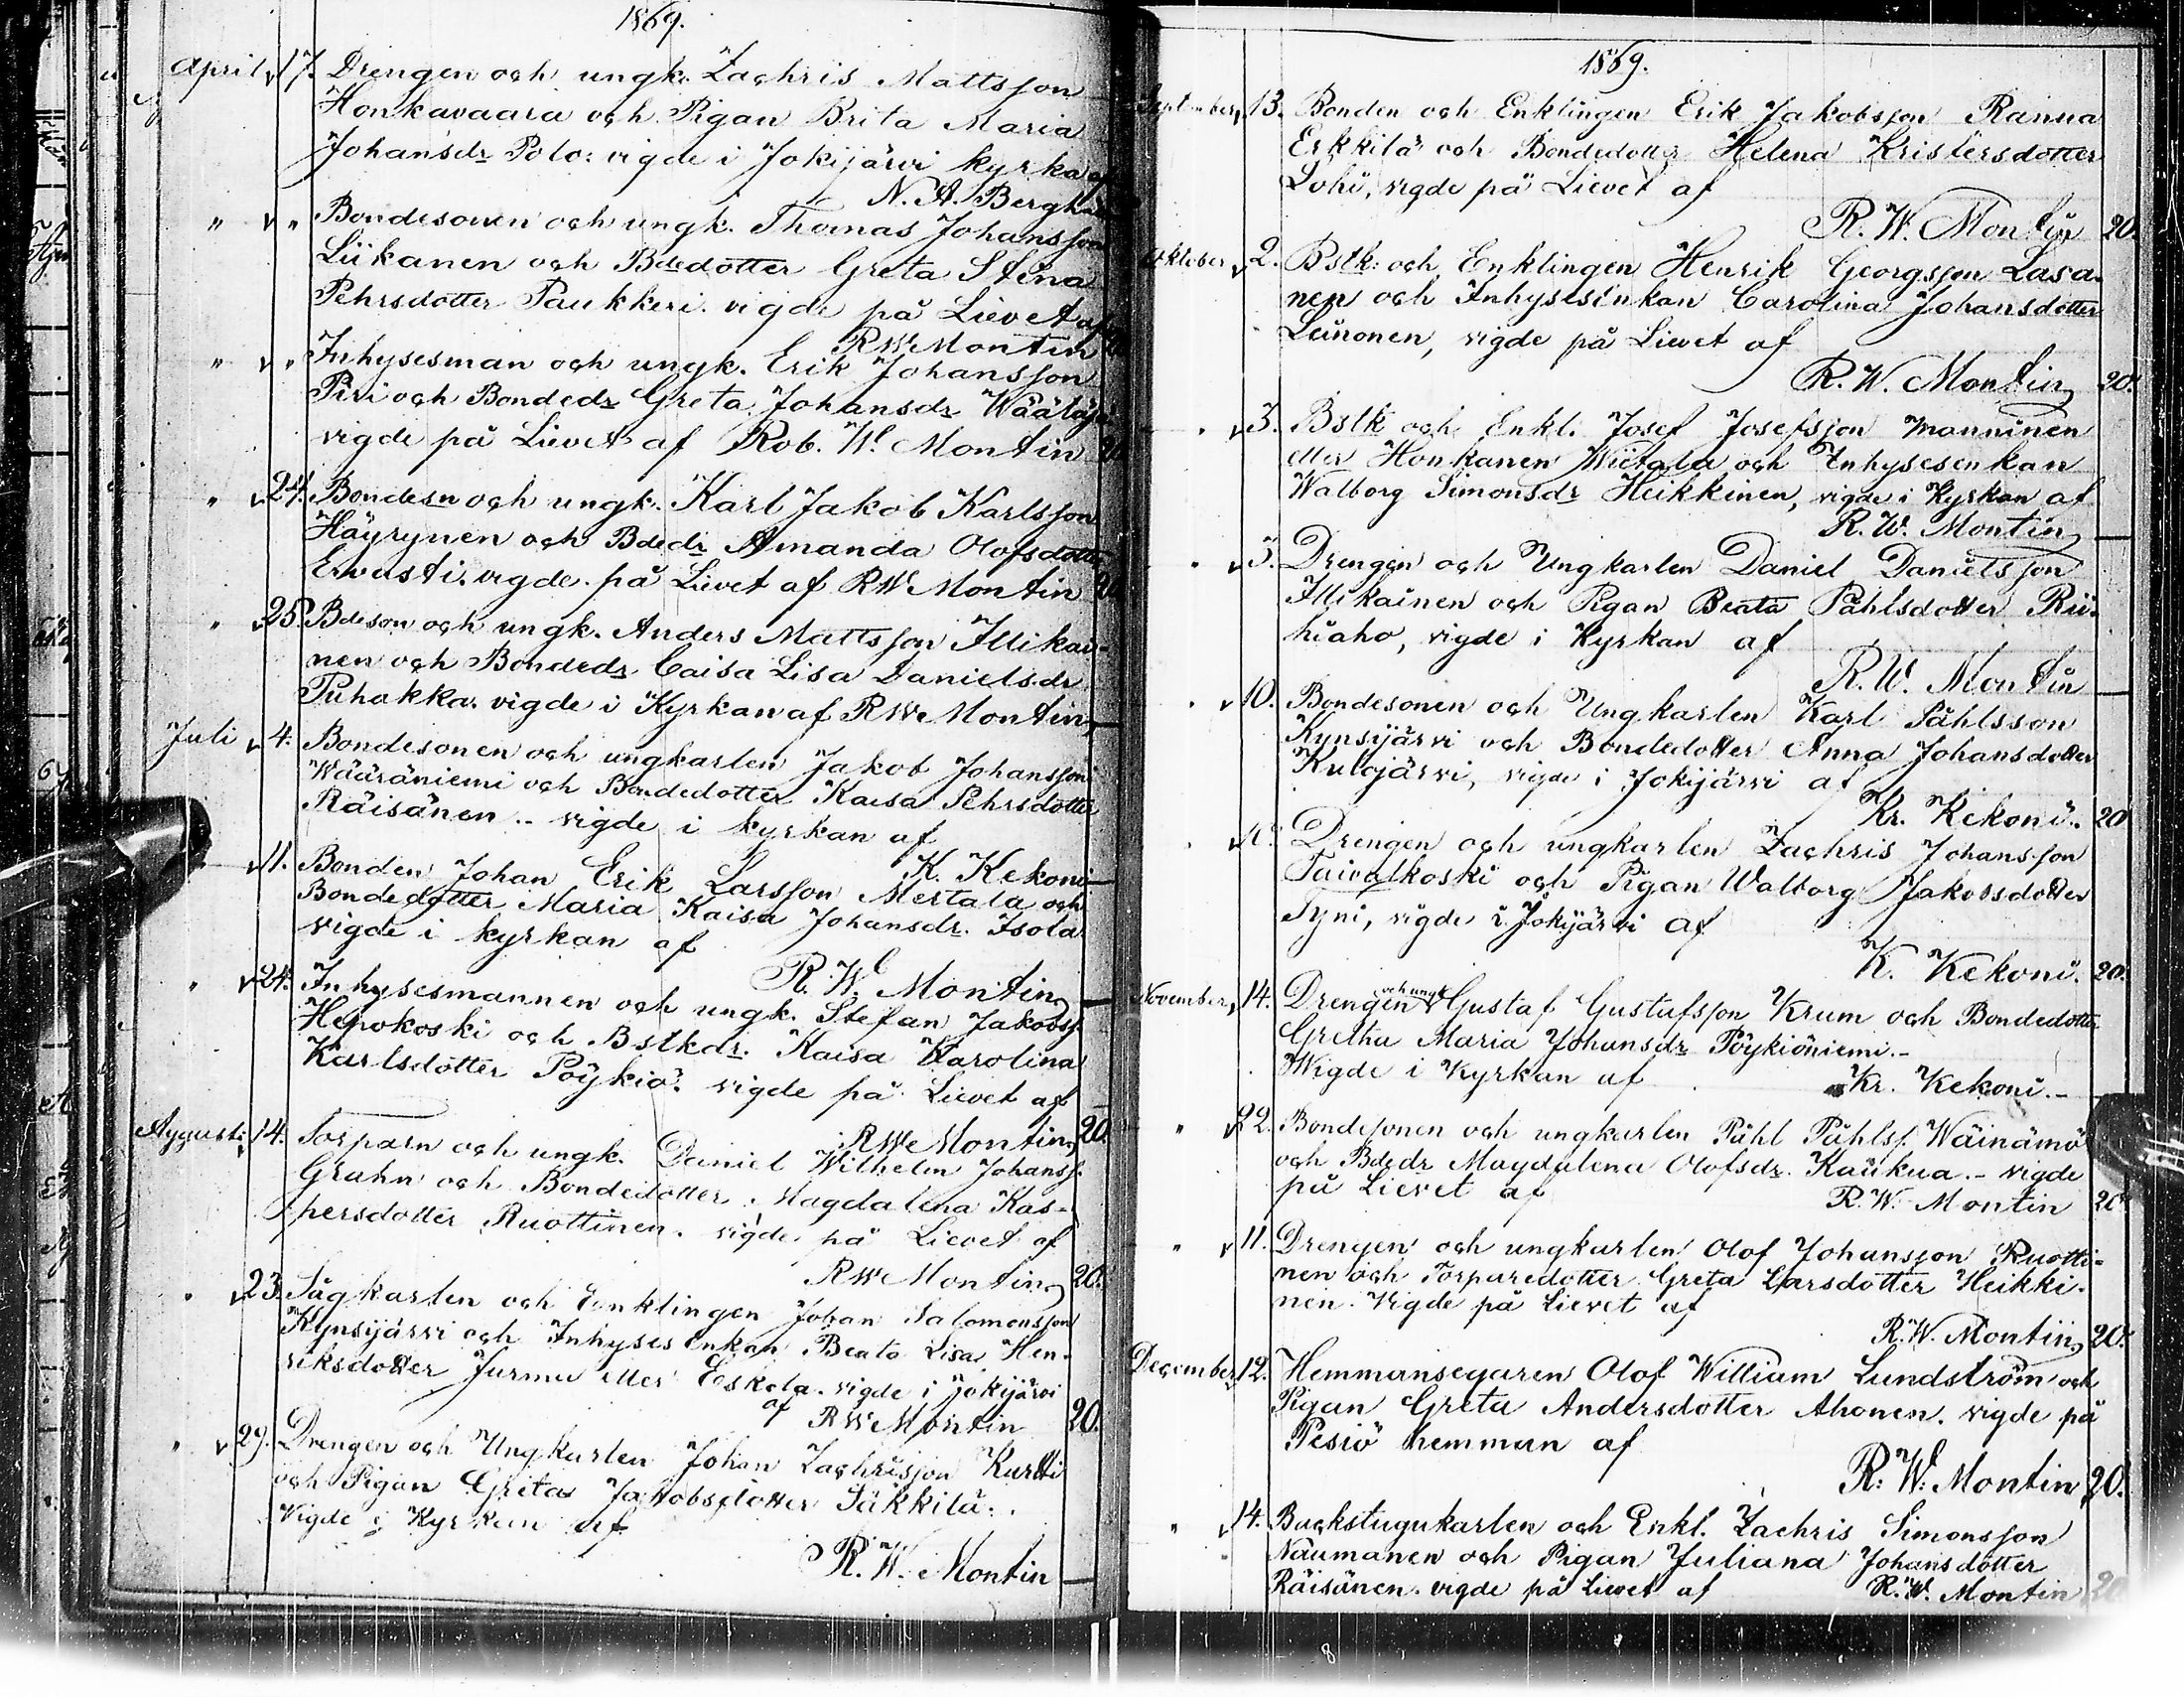 1869.
April 17. Drengen och ungk. Zachris Mattsson
Honkavaara och Pigan Brita Maria
Johansdr Polo: vigde i Jokijärvi kyrka af
N. A. Bergh
" " Bondesonen och ungk. Thomas Johansson
Liikanen och Bdedotter Greta Stina
Pehrsdotter Paukkeri. vigde på Lievet af
RWMontin
" " Inhysesman och ungk. Erik Johansson
Piri och Bondedr Greta Johansdr
vigde på Lievet af Rob. W. Montin 20
" 24. Bondesn och ungk. Karl Jakob Karlsson
Häyrynen och Bdedr Amanda Olofsdotter
Ervasti. vigde på Lievet af RWMontin 20
" 25. Bdeson och ungk. Anders Mattsson Illikai-
nen och Bondedr Caisa Lisa Danielsdr
Puhakka. vigde i Kyrkan af RWMontin
Juli 4. Bondesonen och ungkarlen Jakob Johansson
Wääräniemi och Bondedotter Kaisa Pehrsdotter
Räisänen.- vigde i kyrkan af
K. Kekoni
11. Bonden Johan Erik Larsson Mertala och
Bondedotter Maria Kaisa Johansdr. Isola
vigde i kyrkan af
R. W. Montin
" 24. Inhysesmannen och ungk. Stefan Jakobss.
Hepokoski och Bstkdr. Kaisa Karolina
Karlsdotter Pöykiö. vigde på Lievet af
RWMontin 20.
Augusti 14. Torparn och ungk. Daniel Wilhelm Johanss.
Grahn och Bondedotter Magdalena Kas-
persdotter Ruottinen. vigde på Lievet af
RWMontin 20.
" 23. Sågkarlen och Enklingen Johan Salomonsson
Kynsijärvi och Inhyses enkan Beata Lisa Hen-
riksdotter Jurmu eller Eskola. vigde i Jokijärvi
af RWMontin 20.
" 29. Drengen och Ungkarlen Johan Zachrisson Kurtti
och Pigan Greta Jakobsdotter Säkkilä.
Vigde i Kyrkan af
R. W. Montin
1869.
September 13. Bonden och Enklingen Erik Jakobsson Ranua
Erkkilä och Bondedotter Helena Kristersdotter
Lohi, vigde på Lievet af
R. W. Montin 20.
Oktober 2. Bstk: och Enklingen Henrik Georgsson Lasa-
nen och Inhysesenkan Carolina Johansdotter
Leinonen, vigde på Lievet af
R. W. Montin 20.
" 3. Bstk och Enkl. Josef Josefsson Manninen
eller Honkanen Wiitala och Inhysesenkan
Walborg Simonsdr Heikkinen, vigde i Kyrkan af
R. W. Montin
" 3. Drengen och Ungkarlen Daniel Danielsson
Illikainen och Pigan Beata Påhlsdotter Rii-
hiaho, vigde i Kyrkan af
R. W. Montin
" 10. Bondesonen och Ungkarlen Karl Påhlsson
Kynsijärvi och Bondedotter Anna Johansdotter
Kulojärvi, vigde i Jokijärvi af
Kr. Kekoni. 20
" 10. Drengen och ungkarlen Zachris Johansson
Taivalkoski och Pigan Walborg Jakobsdotter
Tyni, vigde i Jokijärvi af
K. Kekoni. 20.
November 14. Drengen och ungk Gustaf Gustafsson Krum och Bondedotter
Gretha Maria Johansdr Pöykiöniemi.-
Wigde i Kyrkan af Kr. Kekoni.-
" 22. Bondesonen och ungkarlen Påhl Påhlss. Wäinämö
och Bdedr Magdalena Olofsdr. Kaukua.- vigde
på Lievet af R. W. Montin 20
" 11. Drengen och ungkarlen Olof Johansson Ruotti-
nen och Torparedotter Greta Larsdotter Heikki-
nen. Vigde på Lievet af
R. W. Montin 20.
December 12. Hemmansegaren Olof William Lundström och
Pigan Greta Andersdotter Ahonen. vigde på
Pesiö hemman af
R. W. Montin 20.
" 14. Backstugukarlen och Enkl. Zachris Simonsson
Naumanen och Pigan Juliana Johansdotter
Räisänen. vigde på Lievet af R. W. Montin 20